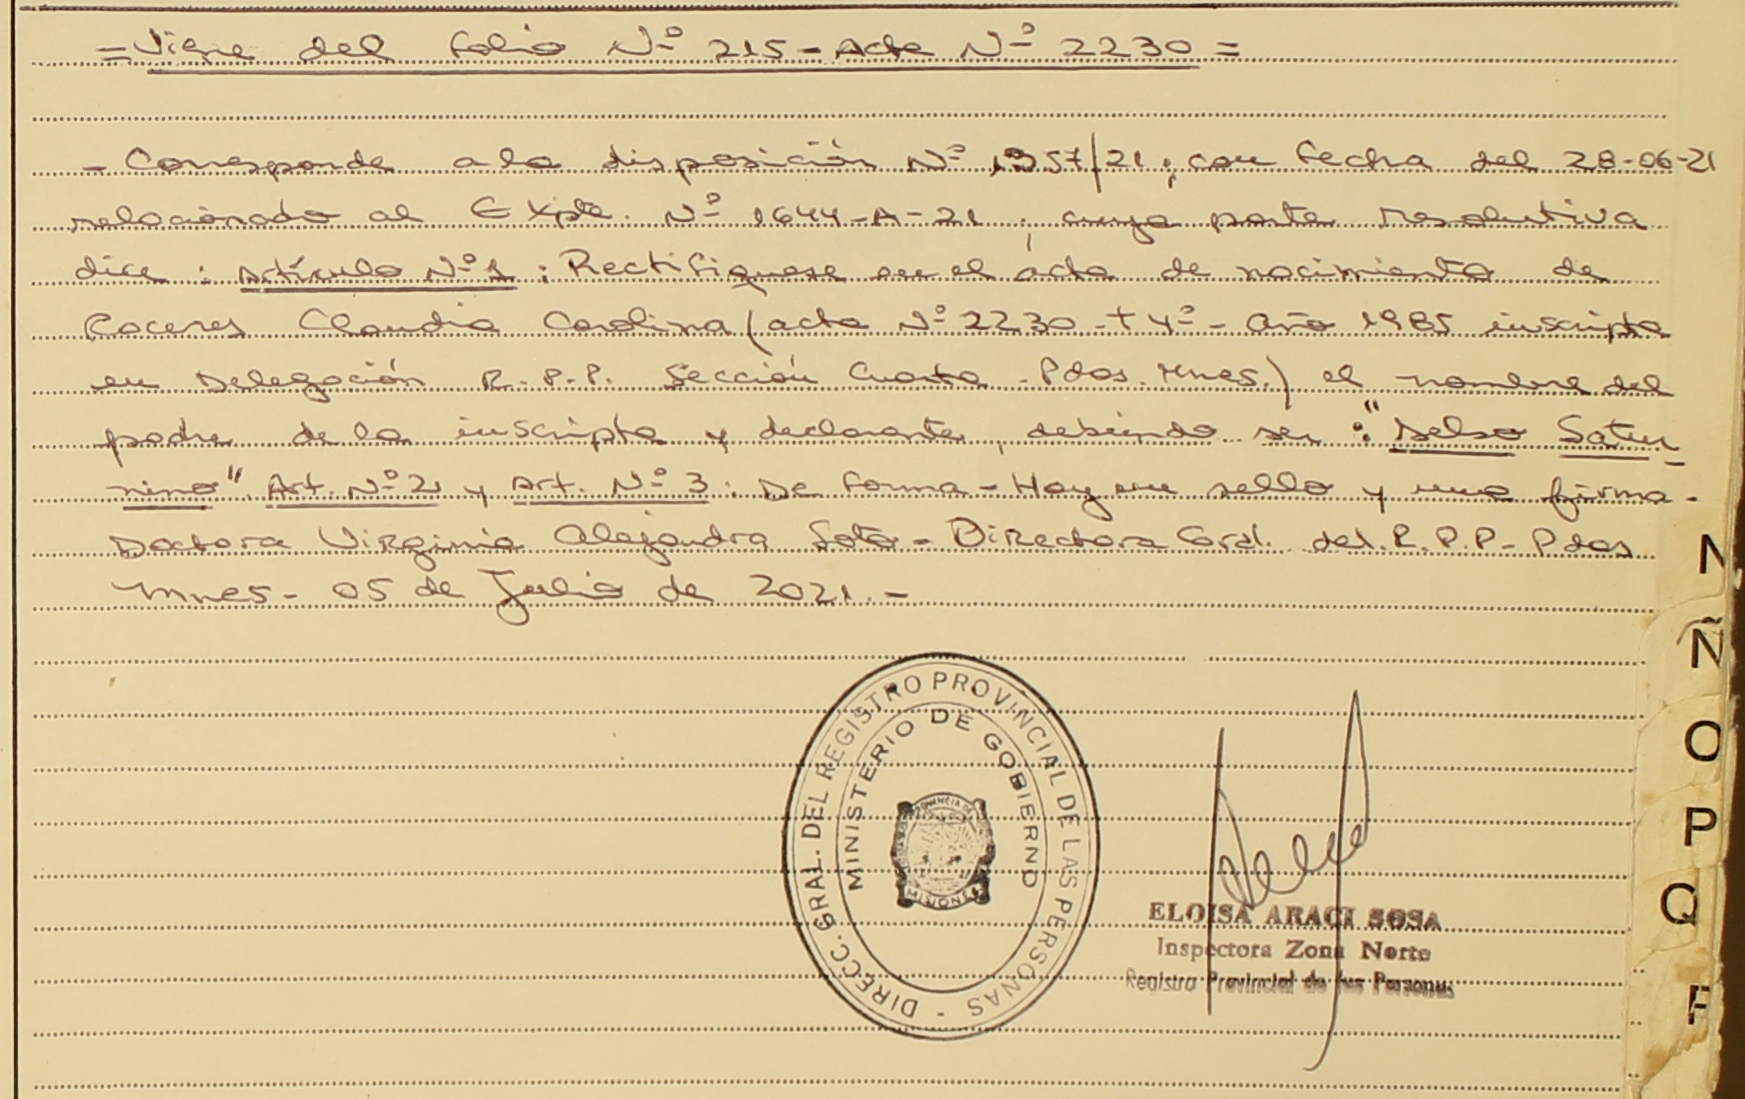 = Viene del folio Nº 215 - Acta Nº 2230 =
- Corresponde a la disposición Nº 1357/21, con fecha del 28-06-21
relacionado al Expte. Nº 1644-A-21, cuya parte resolutiva
dice: Artículo Nº 1: Rectifiquese en el acta de nacimiento de
Roceres Claudia Carolina (acta Nº 2230 - tº 4º - año 1985 inscripta
en Delegación R.P.P. Sección Cuarta - Pdas. Mnes.) el nombre del
padre de la inscripta y declarante, debiendo ser: "Delso Satur-
nino". Art. Nº 2 y Art. Nº 3: De forma - Hay un sello y una firma -
Doctora Virginia Alejandra Soto - Directora Gral. del R.P.P - Pdas
Mnes - 05 de Julio de 2021. -
DIRECC. GRAL. DEL REGISTRO PROVINCIAL DE LAS PERSONAS -
MINISTERIO DE GOBIERNO
PROVINCIA DE
MISIONES
ELOISA ARACI SOSA
Inspectora Zona Norte
Registro Provincial de las Personas
N
Ñ
O
P
Q